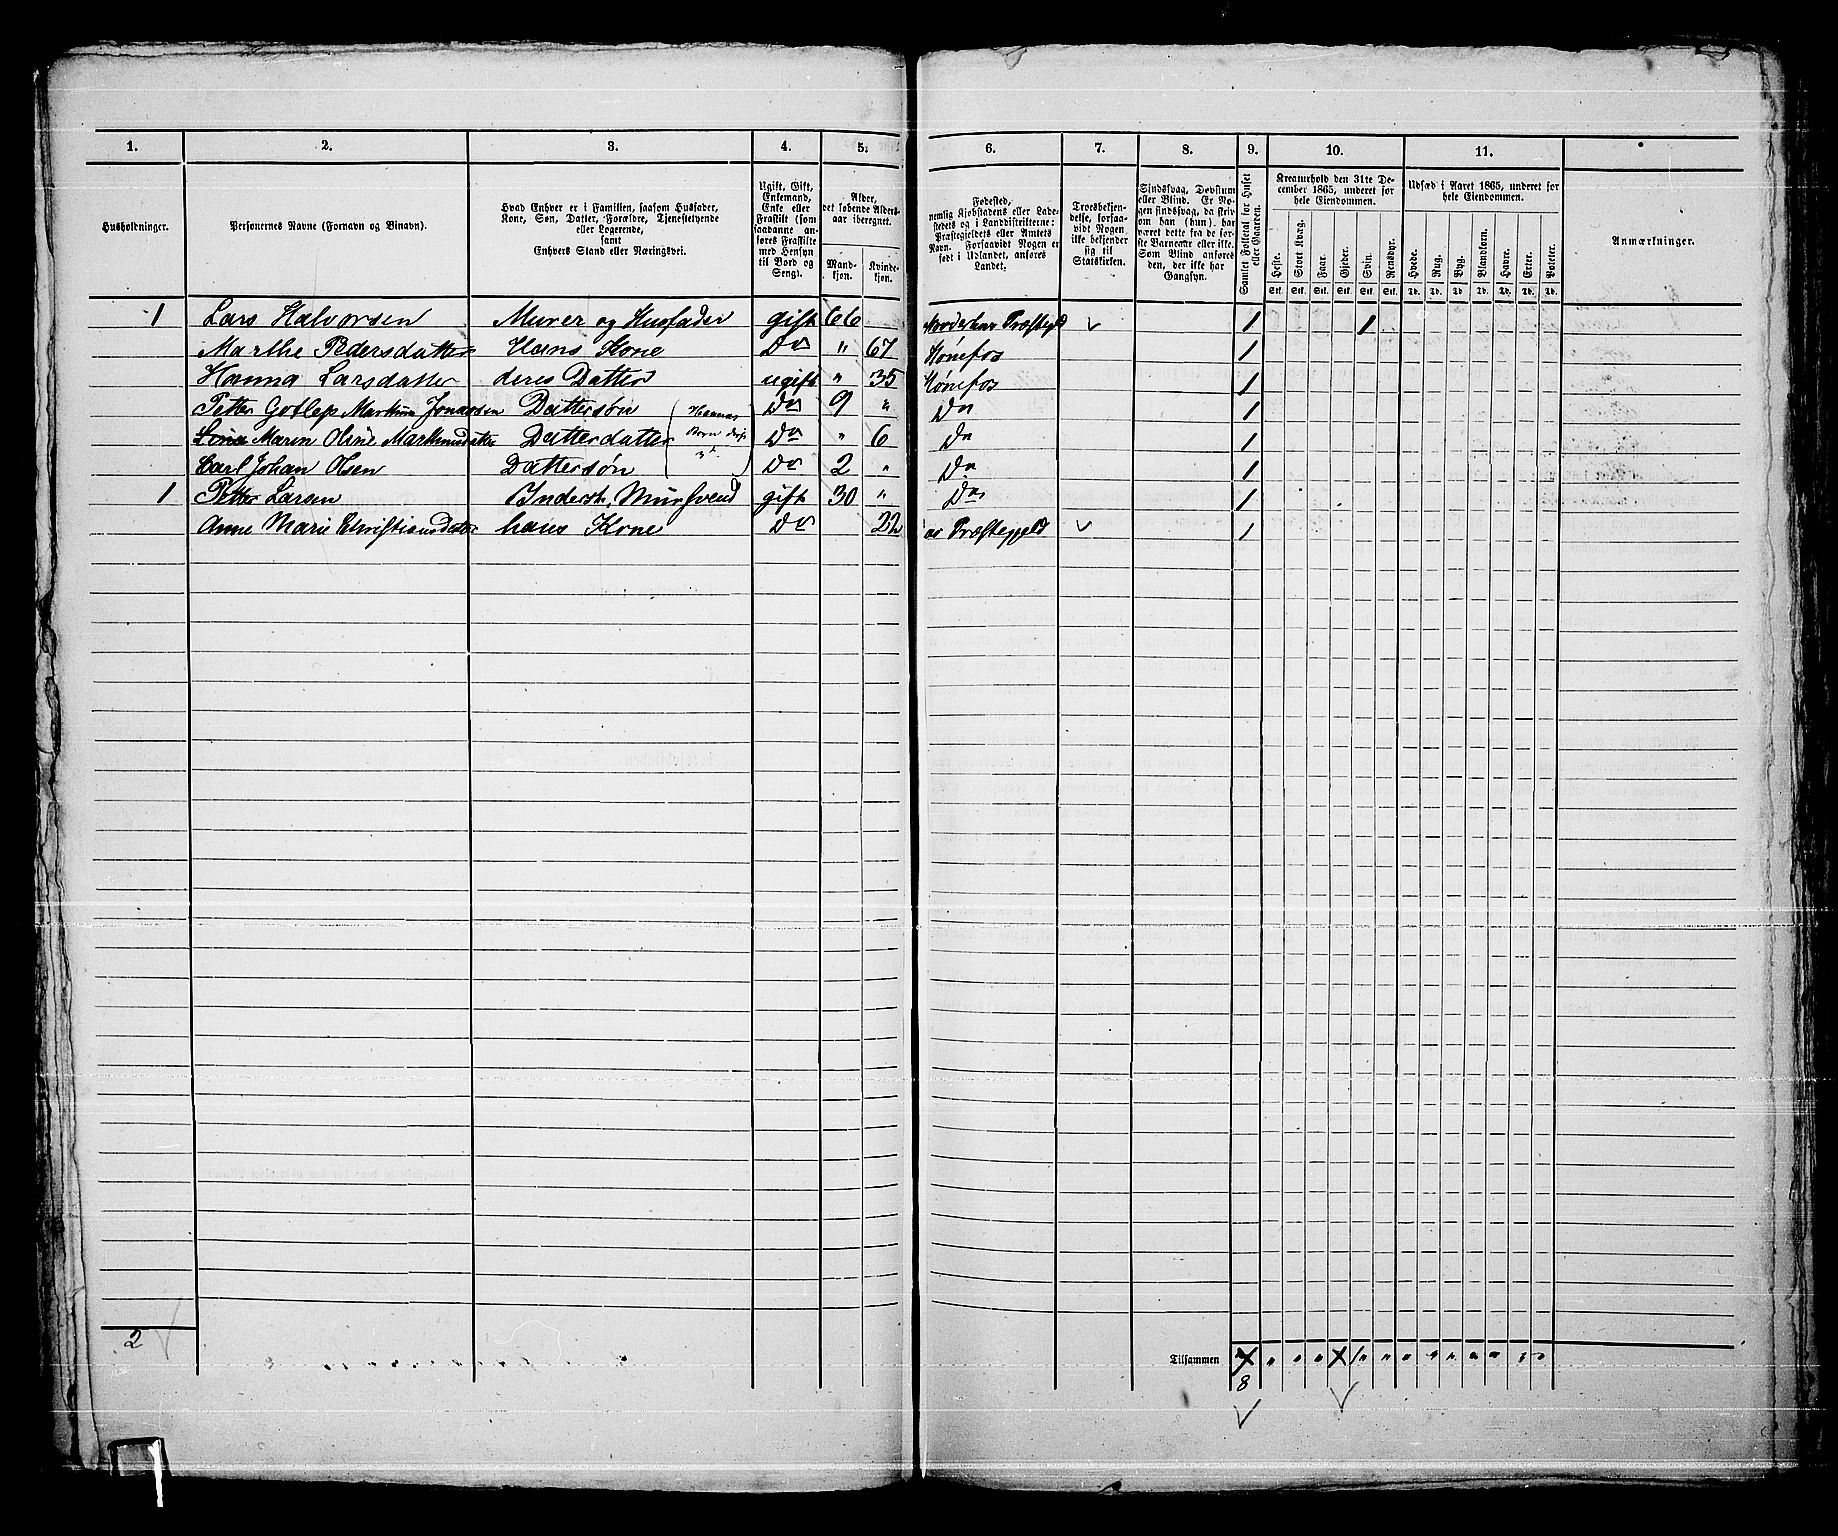 1. 2. 3. 4. 5. 6. 7. 8. 9. 10. 11.
Husholdninger.
Personernes Navne (Fornavn og Binavn).
Hvad Enhver er i Familien, saasom Husfader,
Kone, Søn, Datter, Forældre, Tjenestetyende
eller Logerende,
samt
Enhvers Stand eller Næringsvei.
Ugift, Gift,
Enkemand,
Enke eller
Fraskilt (som
saadanne an-
føres Fraskilte
med Hensyn
til Bord og
Seng).
Alder,
det løbende Alders-
aar iberegnet.
Mand-
kjøn.
Kvinde-
kjøn.
Fødested,
nemlig Kjøbstadens eller Lade-
stedets og i Landdistrikterne:
Præstegjeldets eller Amtets
Navn. Forsaavidt Nogen er
født i Udlandet, anføres
Landet.
Troesbekjen-
delse, forsaa-
vidt Nogen
ikke bekjender
sig til
Statskirken.
Sindssvag, Døvstum
eller Blind. Er No-
gen sindssvag, da skriv
om han (hun) har
været dette fra de før-
ste Barneaar eller ikke.
Som Blind anføres
den, der ikke har
Gangsyn.
Samlet Folketal for Huset
eller Gaarden.
Kreaturhold den 31te De-
cember 1865, underet for
hele Eiendommen.
Heste. Stort Kvæg. Faar. Gjeder. Svin. Rensdyr.
Stk. Stk. Stk. Stk. Stk. Stk.
Udsæd i Aaret 1865, underet for
hele Eiendommen.
Hvede. Rug. Byg. Blandkorn. Havre. Erter. Poteter.
Td. Td. Td. Td. Td. Td. Td.
Anmærkninger.
1 Lars Halvorsen Murer og Husfader gift 66 Præstegjeld 1 1
Marthe Pedersdatter Hans Kone Do " 67 Hønefos 1
Hanna Larsdatter deres Datter ugift " 35 Hønefos 1
Petter Gotlep Dattersøn Hannas Do 9 " Do 1
Maren Oline Datterdatter Børn Do " 6 Do 1
Carl Johan Olsen Dattersøn Do 2 " Do 1
1 Petter Larsen Inderst, Mursvend gift 30 " Do 1
Anne Marie Christiansdatter hans Kone Do 22 Præstegjeld 1
2
Tilsammen
8